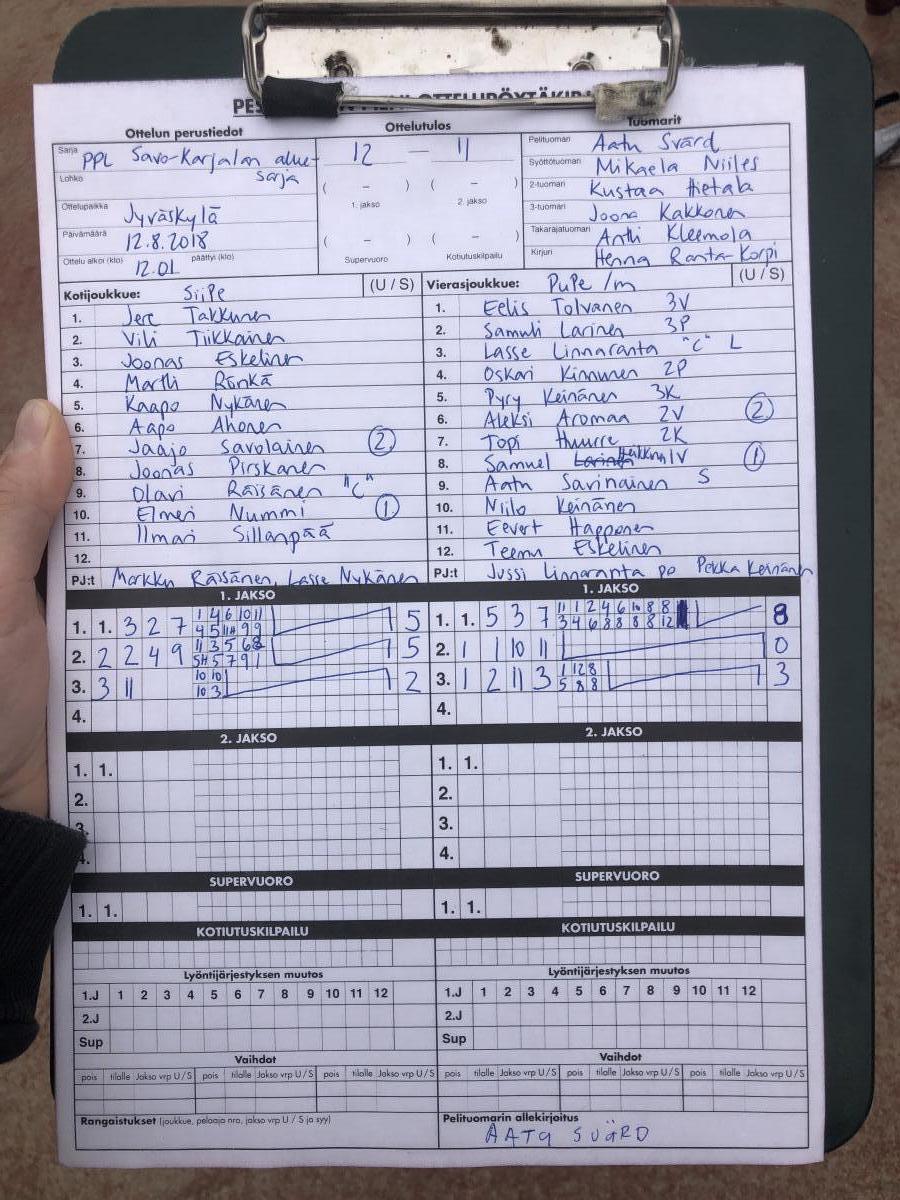 Ottelun perustiedot
Ottelutulos
Tuomarit
Sarja PPL Savo-Karjalan alue-
sarja
Lohko
Ottelupaikka Jyväskylä
Päivämäärä 12.8.2018
Ottelu alkoi (klo) 12.01 päättyi (klo)
12 — 11
( – ) ( – )
1. jakso 2. jakso
( – ) ( – )
Supervuoro Kotiutuskilpailu
Pelituomari Aatu Svärd
Syöttötuomari Mikaela Niiles
2-tuomari Kustaa Hietala
3-tuomari Joona Kakkonen
Takarajatuomari Antti Kleemola
Kirjuri Henna Ranta-Korpi
Kotijoukkue: SiiPe (U / S)
1. Jere Takkunen
2. Vili Tiikkainen
3. Joonas Eskelinen
4. Martti Rönkä
5. Kaapo Nykänen
6. Aapo Ahonen
7. Jaajo Savolainen 2
8. Joonas Pirskanen
9. Olavi Räisänen "C"
10. Elmeri Nummi 1
11. Ilmari Sillanpää
12.
PJ:t Markku Räisänen, Lasse Nykänen
Vierasjoukkue: PuPe /m (U / S)
1. Eelis Tolvanen 3V
2. Samuli Larinen 3P
3. Lasse Linnaranta "C" L
4. Oskari Kinnunen 2P
5. Pyry Keinänen 3K
6. Aleksi Aromaa 2V 2
7. Topi Huurre 2K
8. Samuel 1V 1
9. Aatu Savinainen S
10. Niilo Keinänen
11. Eevert Happonen
12. Teemu Eskelinen
PJ:t Jussi Linnaranta po Pekka Keinänen
1. JAKSO
1. 1. 3 2 7 5
2. 2 2 4 9 5
3. 3 11 2
4.
2. JAKSO
1. 1.
2.
3.
4.
SUPERVUORO
1. 1.
KOTIUTUSKILPAILU
Lyöntijärjestyksen muutos
1.J 1 2 3 4 5 6 7 8 9 10 11 12
2.J
Sup
Vaihdot
pois tilalle Jakso vrp U/S pois tilalle Jakso vrp U/S pois tilalle Jakso vrp U/S
Rangaistukset (joukkue, pelaaja nro, jakso vrp U / S ja syy)
1. JAKSO
1. 1. 5 3 7 8
2. 1 1 10 11 0
3. 1 2 11 3 3
4.
2. JAKSO
1. 1.
2.
3.
4.
SUPERVUORO
1. 1.
KOTIUTUSKILPAILU
Lyöntijärjestyksen muutos
1.J 1 2 3 4 5 6 7 8 9 10 11 12
2.J
Sup
Vaihdot
pois tilalle Jakso vrp U/S pois tilalle Jakso vrp U/S pois tilalle Jakso vrp U/S
Pelituomarin allekirjoitus
AATU SVÄRD